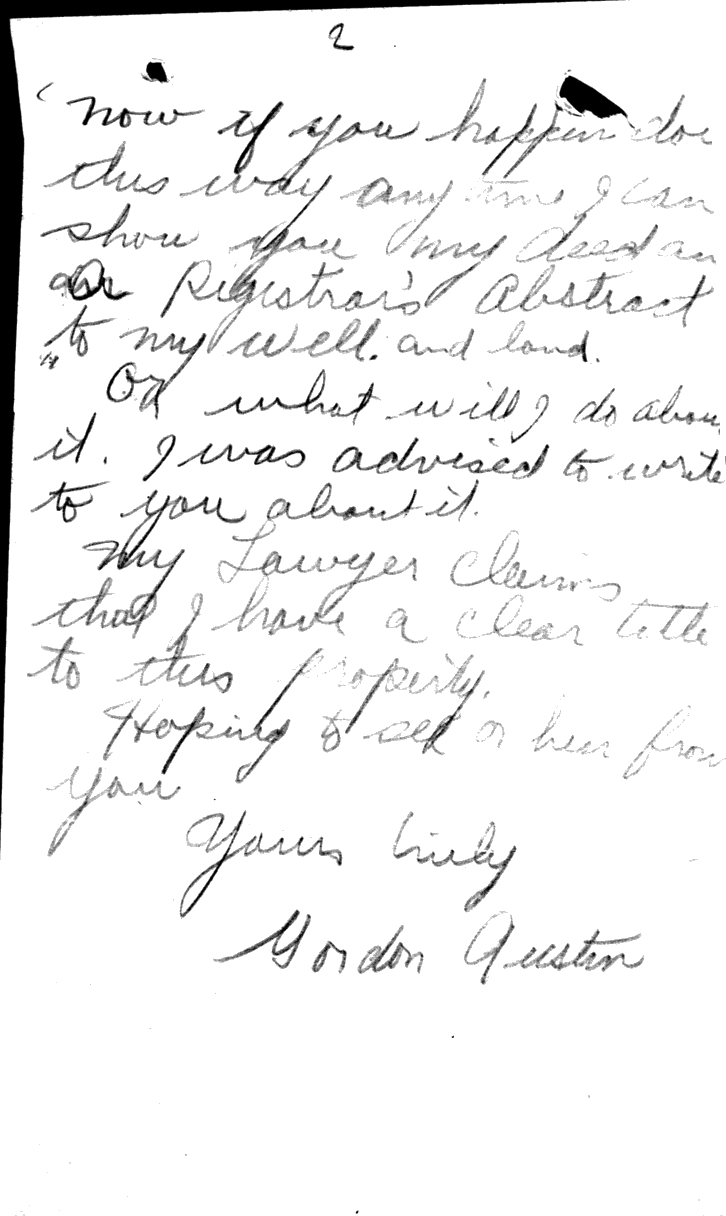 2
now if you happen dow
this way any time I can
show you my deed an
Registrar's Abstract
to my well. and land.
Or what will I do abou
it. I was advised to write
to you about it.
my Lawyer claims
that I have a clear title
to this property.
Hoping to see or hear from
you
Yours truly
Gordon Austin